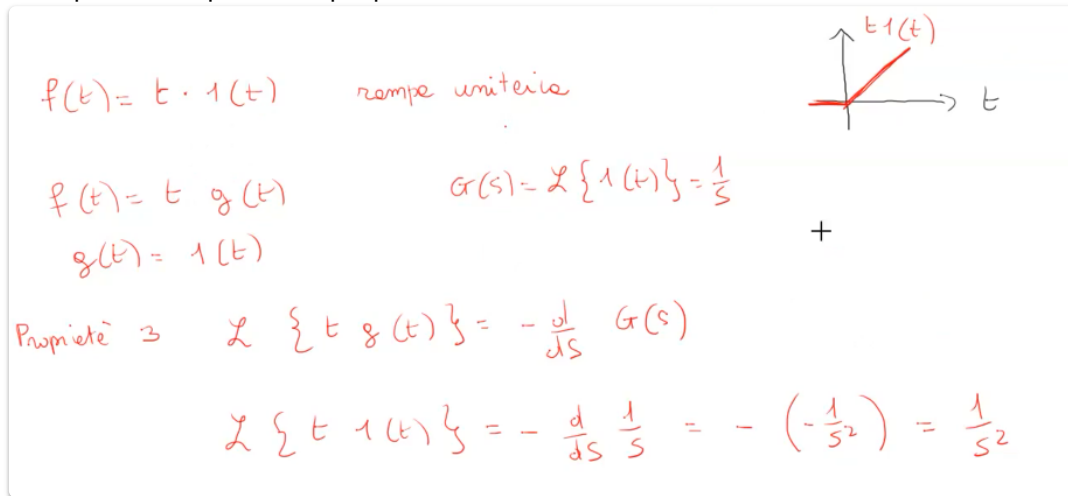 f(t) = t · 1(t) rampa unitaria
t 1(t)
t
f(t) = t g(t) G(s) = ℒ{1(t)} = 1/s
g(t) = 1(t)
Proprietà 3 ℒ {t g(t)} = - d/ds G(s)
ℒ {t 1(t)} = - d/ds 1/s = - (- 1/s²) = 1/s²